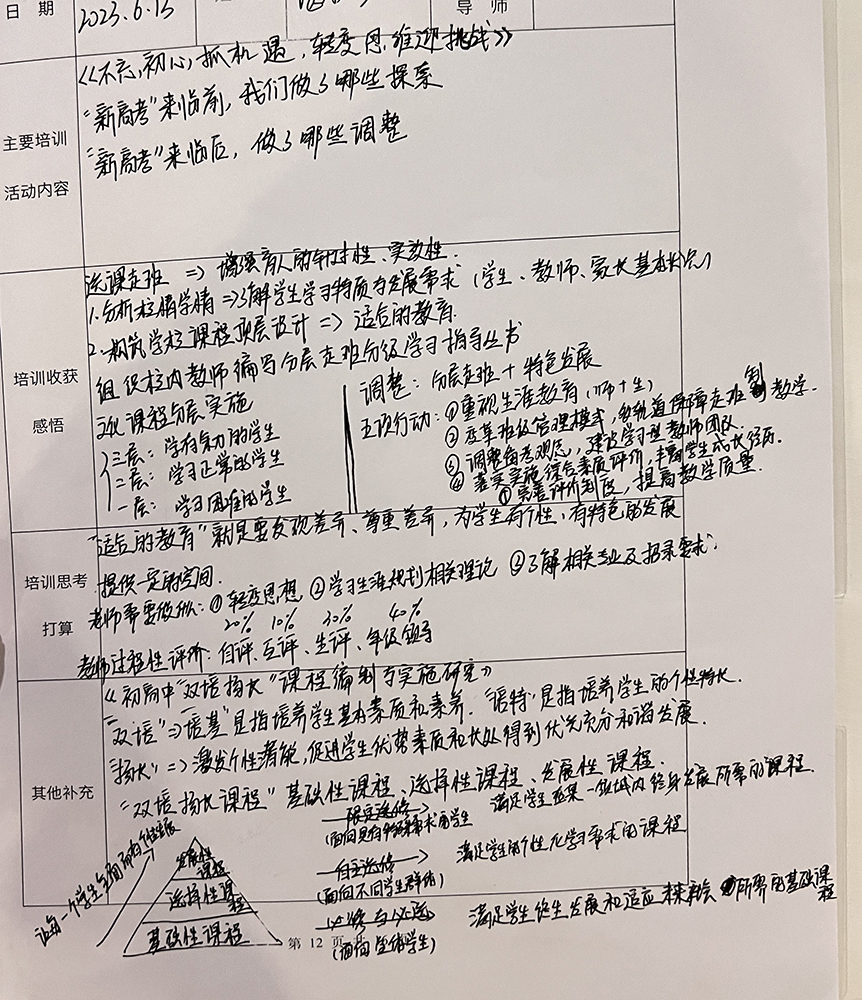 日 期 2023.6.15
导 师
主要培训
活动内容
《不忘初心,抓机遇,转变思维迎挑战》
"新高考"来临前,我们做了哪些探索
"新高考"来临后,做了哪些调整
培训收获
感悟
选课走班 => 增强育人的针对性、实效性.
1.分析校情学情 =>了解学生学习特质与发展需求(学生、教师、家长基本状况)
2.构筑学校课程顶层设计 => 适合的教育.
组织校内教师编写分层走班分级学习指导丛书
课程分层实施
三层:学有余力的学生
二层:学习正常的学生
一层:学习困难的学生
调整:分层走班+特色发展
五项行动:①重视生涯教育(师+生)
②改革班级管理模式,保障走班制教学.
③调整备考观念,建设学习型教师团队.
④落实实施综合素质评价,丰富学生成长经历.
⑤完善评价制度,提高教学质量.
培训思考
打算
"适合的教育"就是要发现差异、尊重差异,为学生有个性、有特色的发展
提供一定的空间.
老师需要做么:①转变思想 ②学习生涯规划相关理论 ③了解相关专业及招录要求;
20% 10% 30% 40%
老师过程性评价:自评、互评、生评、年级领导
其他补充
《初高中"双培扬长"课程编制与实施研究》
"双培"=>"培基"是指培养学生基本素质和素养."培特"是指培养学生的个性特长.
"扬长"=>激发个性潜能,促进学生优势素质和长处得到优先充分和谐发展.
"双培扬长课程"基础性课程、选择性课程、发展性课程.
让每一个学生全面而有个性发展
发展性课程
限定选修
(面向具有特殊需求的学生
满足学生在某一领域内终身发展所需的课程.
选择性课程
自主选修
(面向不同学生群体)
满足学生的个性化学习需求的课程
基础性课程
必修与必选
(面向全体学生)
满足学生终生发展和适应未来社会所需的基础课程
第 12 页